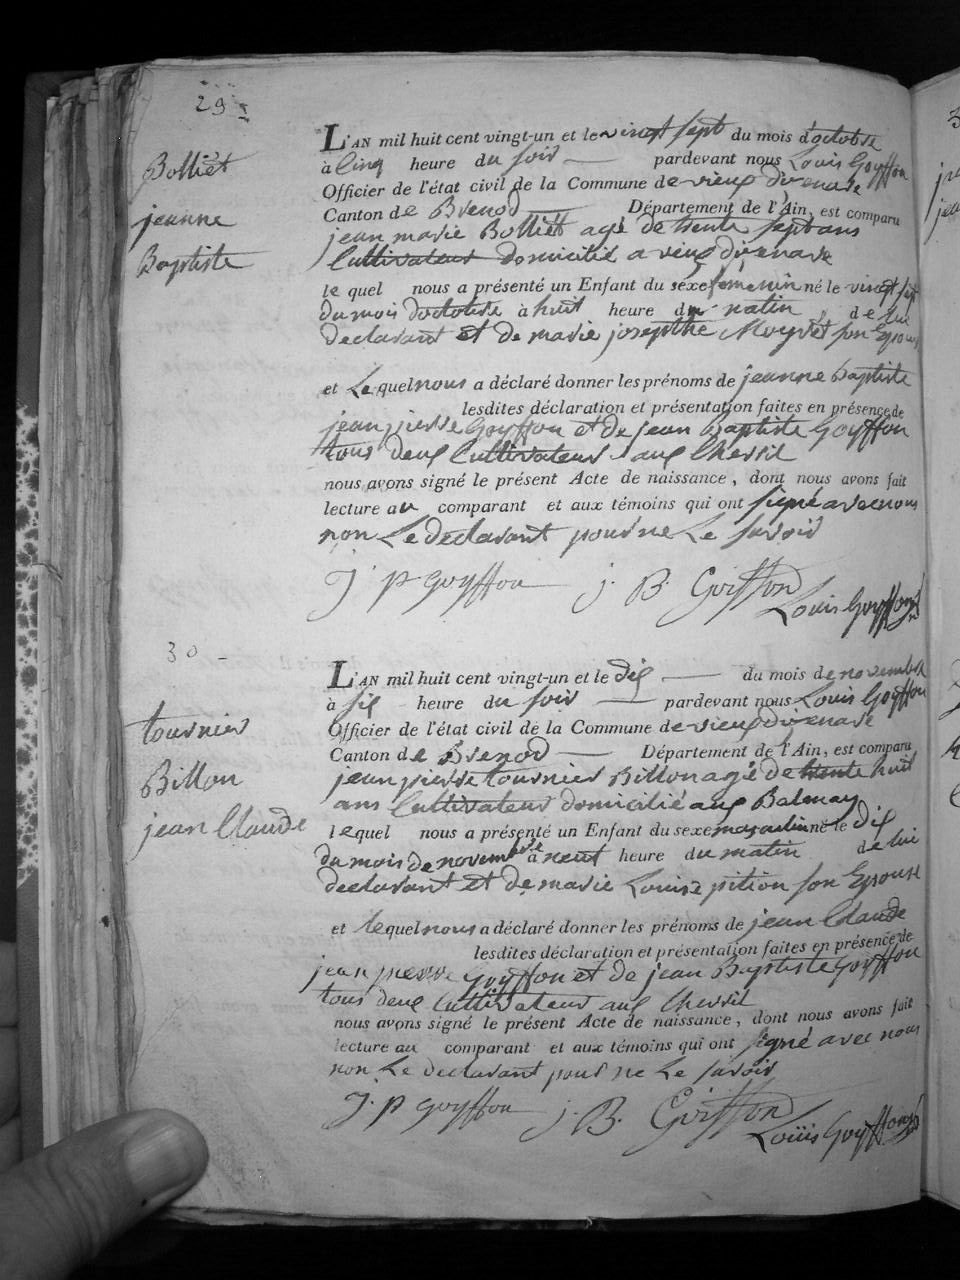 29
Bolliet
jeanne
Baptiste
L'AN mil huit cent vingt-un et le vingt sept du mois d'octobre
à Cinq heure du soir pardevant nous Louis Goyffon
Officier de l'état civil de la Commune de vieux divenave
Canton de Brenod Département de l'Ain, est comparu
jean marie Bolliet agé de trente sept ans
Cultivateur domicilié a vieux divenave
le quel nous a présenté un Enfant du sexe femenin né le vingt sept
du mois doctobre à huit heure du matin de lui
declarant et de marie josepthe Moyret son Epouse
et Le quel nous a déclaré donner les prénoms de jeanne Baptiste
lesdites déclaration et présentation faites en présence de
jean pierre Goyffon et de jean Baptiste Goyffon
tous deux Cultivateur aux Chevril
nous avons signé le présent Acte de naissance, dont nous avons fait
lecture au comparant et aux témoins qui ont signé avec nous
non Le declarant pour ne Le savoir
J. P goyffon J. B. Goiffon
Louis Goyffon
30
tournier
Billon
jean Claude
L'AN mil huit cent vingt-un et le dix du mois de novembre
à six heure du soir pardevant nous Louis Goyffon
Officier de l'état civil de la Commune de vieux divenave
Canton de Brenod Département de l'Ain, est comparu
jean pierre tournier Billon agé de trente huit
ans Cultivateur domicilié aux Balmay
lequel nous a présenté un Enfant du sexe masculin né le dix
du mois de novembre à neuf heure du matin de lui
declarant et de marie Louise pition son Epouse
et le quel nous a déclaré donner les prénoms de jean Claude
lesdites déclaration et présentation faites en présence de
jean pierre Goyffon et de jean Baptiste Goyffon
tous deux Cultivateur aux Chevril
nous avons signé le présent Acte de naissance, dont nous avons fait
lecture au comparant et aux témoins qui ont signé avec nous
non Le declarant pour ne Le savoir
J. P goyffon J. B. Goiffon
Louis Goyffon